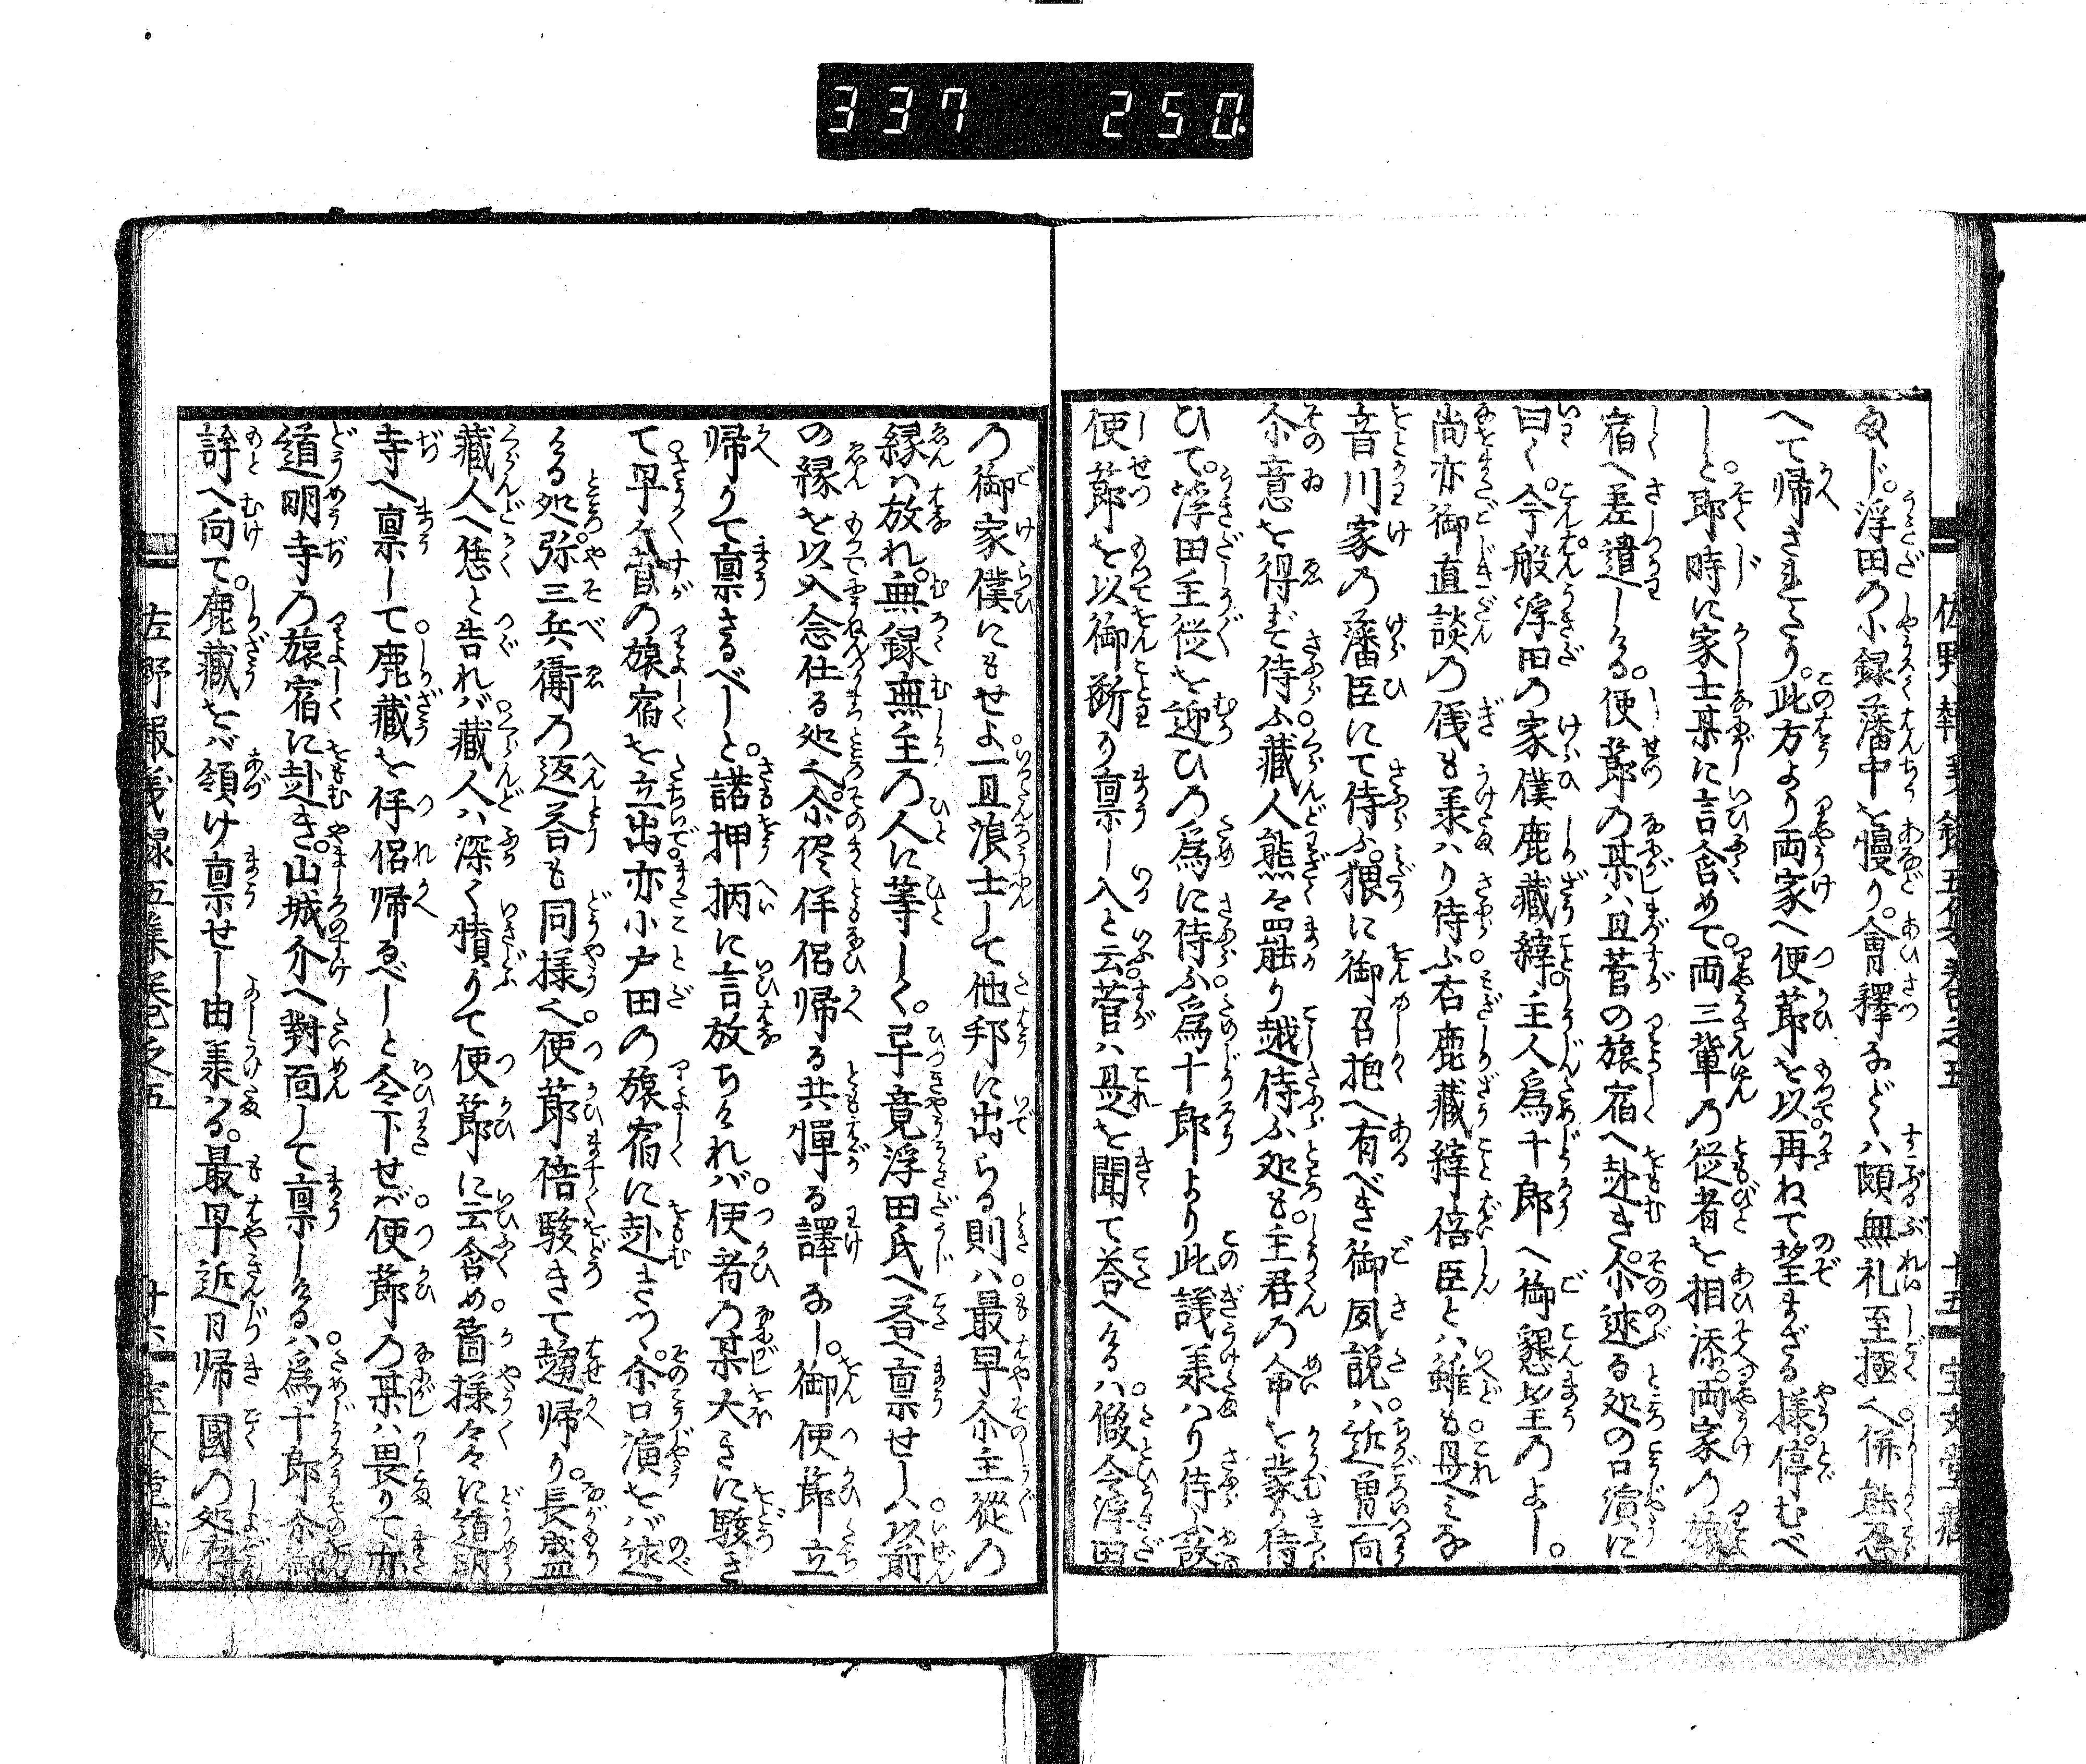 337 250
まじ。浮田の小録藩中を慢り。會釋などくハ頗無礼至極也。併無忌
へて帰さまうさう。此方より両家へ使莭を以再ねて望まざる様。停むべ
しと。即時に家士某に言含めて。両三輩の従者を相添。両家の旅
宿へ差遣しける。使莭の某ハ且菅の旅宿へ赴き。尒述る処の口演に
曰く。今般浮田の家僕鹿藏縡。主人為十郎へ御懇望のよし。
尚亦御直談の儀も羕ハり侍ふ。右鹿藏縡倍臣とハ雖も。是ミな
音川家の藩臣にて侍ふ。猥に御召抱へ有べき御夙説ハ。近曽一向
尒意を得ず侍ふ。藏人熊々罷り越侍ふ処も。主君の命を蒙り侍
ひて。浮田主従を迎ひの為に侍ふ。為十郎より此議羕ハり侍ふ故
使莭を以御断り禀し入と云。菅ハ是を聞て荅へけるハ。假令浮田
の御家僕にもせよ。一旦浪士して他邦に出らる則ハ。最早尒主從の
縁ハ放れ。無録無主の人に等しく。畢竟浮田氏へ荅へ禀せし。以前
の縁を以入念仕る処也。尒侭伴侶帰る共憚る譯なし。御使莭立
帰りて禀さるべしと。諾押柄に言放ちけれバ。使者の某大きに駭き
て。早く菅の旅宿を立出。亦小戸田の旅宿に赴きつゝ。尒口演をバ述
ける処。弥三兵衛の返荅も同様也。使莭倍駭きて趨帰り。長盛
藏人へ恁と告れバ。藏人ハ深く憤りて使莭に云含め。箇様々々に道明
寺へ禀して。鹿藏を伴侶帰るべしと令下せバ。使莭の某ハ畏りて亦
道明寺の旅宿に赴き。山城介へ對面して禀しけるハ。為十郎尒御
許へ向て。鹿藏をバ領け禀せし由羕ハる。最早近日帰國の処存
佐野報義録五集巻之五 十五 宝文堂藏
佐野報義録五集巻之五 十六 宝文堂藏